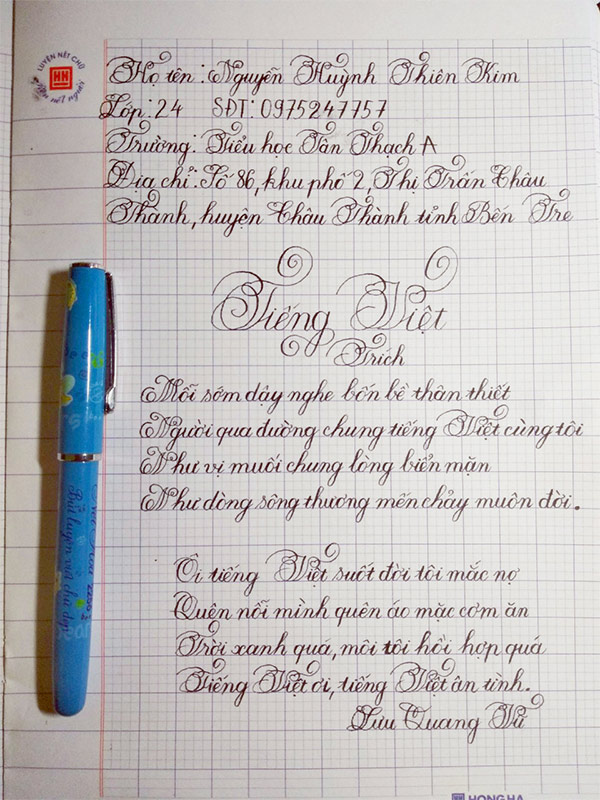 LUYỆN NÉT CHỮ
HN
Rèn nết người
Họ tên : Nguyễn Huỳnh Thiên Kim
Lớp : 24 SĐT: 0975247757
Trường: Tiểu học Tân Thạch A
Địa chỉ: Số 86, khu phố 2, Thị Trấn Châu
Thành, huyện Châu Thành tỉnh Bến Tre
Tiếng Việt
Trích
Mỗi sớm dậy nghe bốn bề thân thiết
Người qua đường chung tiếng Việt cùng tôi
Như vị muối chung lòng biển mặn
Như dòng sông thương mến chảy muôn đời.
Ôi tiếng Việt suốt đời tôi mắc nợ
Quên nỗi mình quên áo mặc cơm ăn
Trời xanh quá, môi tôi hồi hộp quá
Tiếng Việt ơi, tiếng Việt ân tình.
Lưu Quang Vũ
Bút luyện viết chữ đẹp
HONG HA